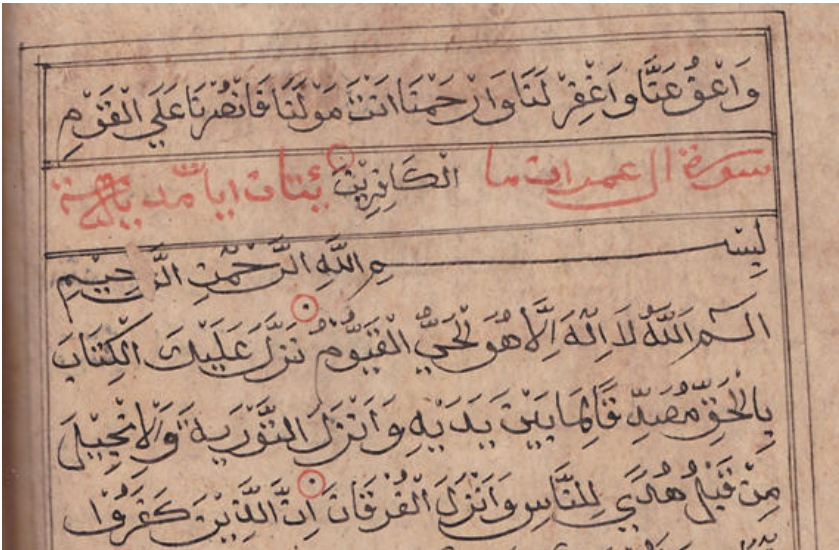 وَاعْفُ عَنَّا وَاغْفِرْ لَنَا وَارْحَمْنَا اَنْتَ مَوْلَنَا فَانْصُرْنَا عَلَي الْقَوْمِ
سورة ال عمران ما الْكَافِرِيْنَ ئتان اية مدنية
بِسْمِ اللّٰهِ الرَّحْمٰنِ الرَّحِيْمِ
الٓـمّٓ اَللّٰهُ لَا اِلٰهَ اِلَّا هُوَ الْحَيُّ الْقَيُّوْمُ نَزَّلَ عَلَيْكَ الْكِتَابَ
بِالْحَقِّ مُصَدِّقًا لِمَا بَيْنَ يَدَيْهِ وَاَنْزَلَ التَّوْرٰيةَ وَالْاِنْجِيْلَ
مِنْ قَبْلُ هُدًي لِلنَّاسِ وَاَنْزَلَ الْفُرْقَانَ اِنَّ الَّذِيْنَ كَفَرُوْا